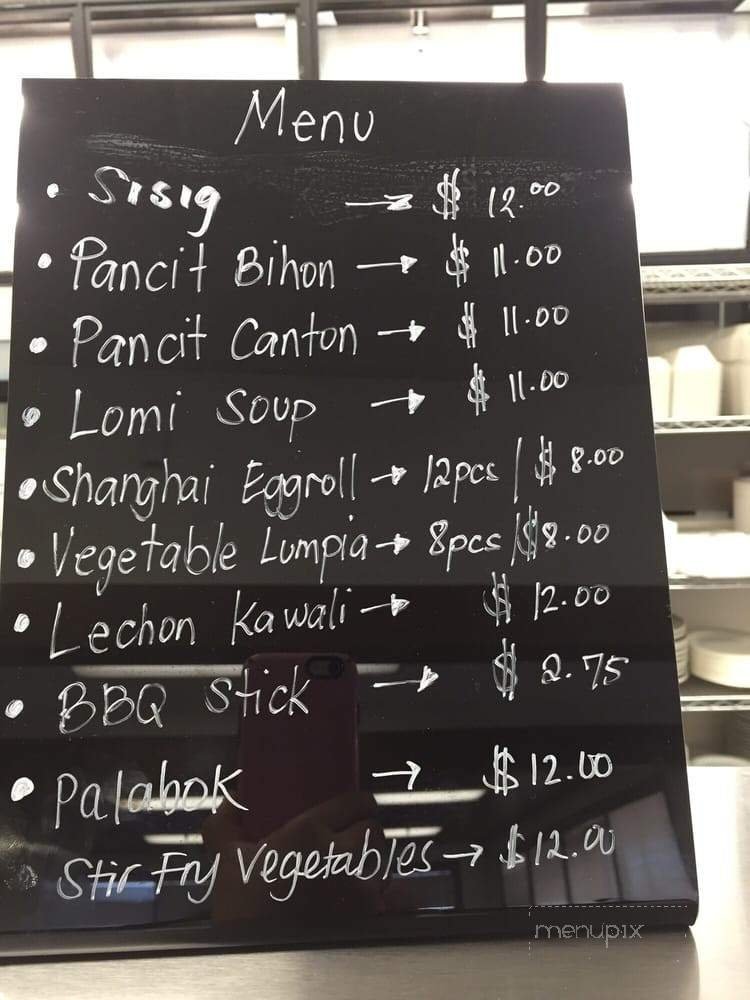 Menu
• Sisig → $ 12.00
• Pancit Bihon → $ 11.00
• Pancit Canton → $ 11.00
• Lomi Soup → $ 11.00
• Shanghai Eggroll → 12pcs / $ 8.00
• Vegetable Lumpia → 8pcs / $8.00
• Lechon Kawali → $ 12.00
• BBQ Stick → $ 2.75
• Palabok → $12.00
Stir Fry Vegetables → $12.00
menupix